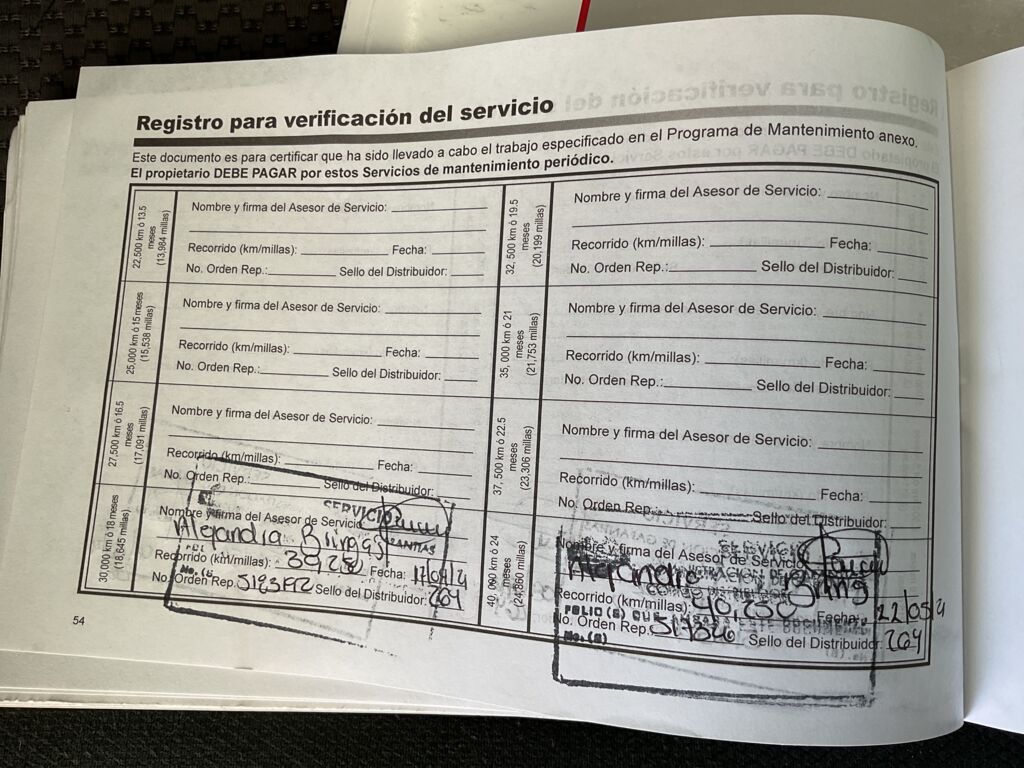 Registro para verificación del servicio
Este documento es para certificar que ha sido llevado a cabo el trabajo especificado en el Programa de Mantenimiento anexo.
El propietario DEBE PAGAR por estos Servicios de mantenimiento periódico.
22,500 km ó 13.5
meses
(13,984 millas)
Nombre y firma del Asesor de Servicio:
Recorrido (km/millas): Fecha:
No. Orden Rep.: Sello del Distribuidor:
25,000 km ó 15 meses
(15,538 millas)
Nombre y firma del Asesor de Servicio:
Recorrido (km/millas): Fecha:
No. Orden Rep.: Sello del Distribuidor:
27,500 km ó 16.5
meses
(17,091 millas)
Nombre y firma del Asesor de Servicio:
Recorrido (km/millas): Fecha:
No. Orden Rep.: Sello del Distribuidor:
30,000 km ó 18 meses
(18,645 millas)
SERVICIO
Nombre y firma del Asesor de Servicio
Alejandra
Recorrido (km/millas): Fecha:
No. Orden Rep. Sello del Distribuidor: 264
32, 500 km ó 19.5
meses
(20,199 millas)
Nombre y firma del Asesor de Servicio:
Recorrido (km/millas): Fecha:
No. Orden Rep.: Sello del Distribuidor:
35, 000 km ó 21
meses
(21,753 millas)
Nombre y firma del Asesor de Servicio:
Recorrido (km/millas): Fecha:
No. Orden Rep.: Sello del Distribuidor:
37, 500 km ó 22.5
meses
(23,306 millas)
Nombre y firma del Asesor de Servicio:
Recorrido (km/millas): Fecha:
No. Orden Rep. Sello del Distribuidor:
40, 000 km ó 24
meses
(24,860 millas)
SERVICIO
Nombre y firma del Asesor de Servicio
Recorrido (km/millas): 40,250 Fecha: 22/05/21
FOLIO (S) QUE
No. Orden Rep. Sello del Distribuidor: 264
No. (S)
54